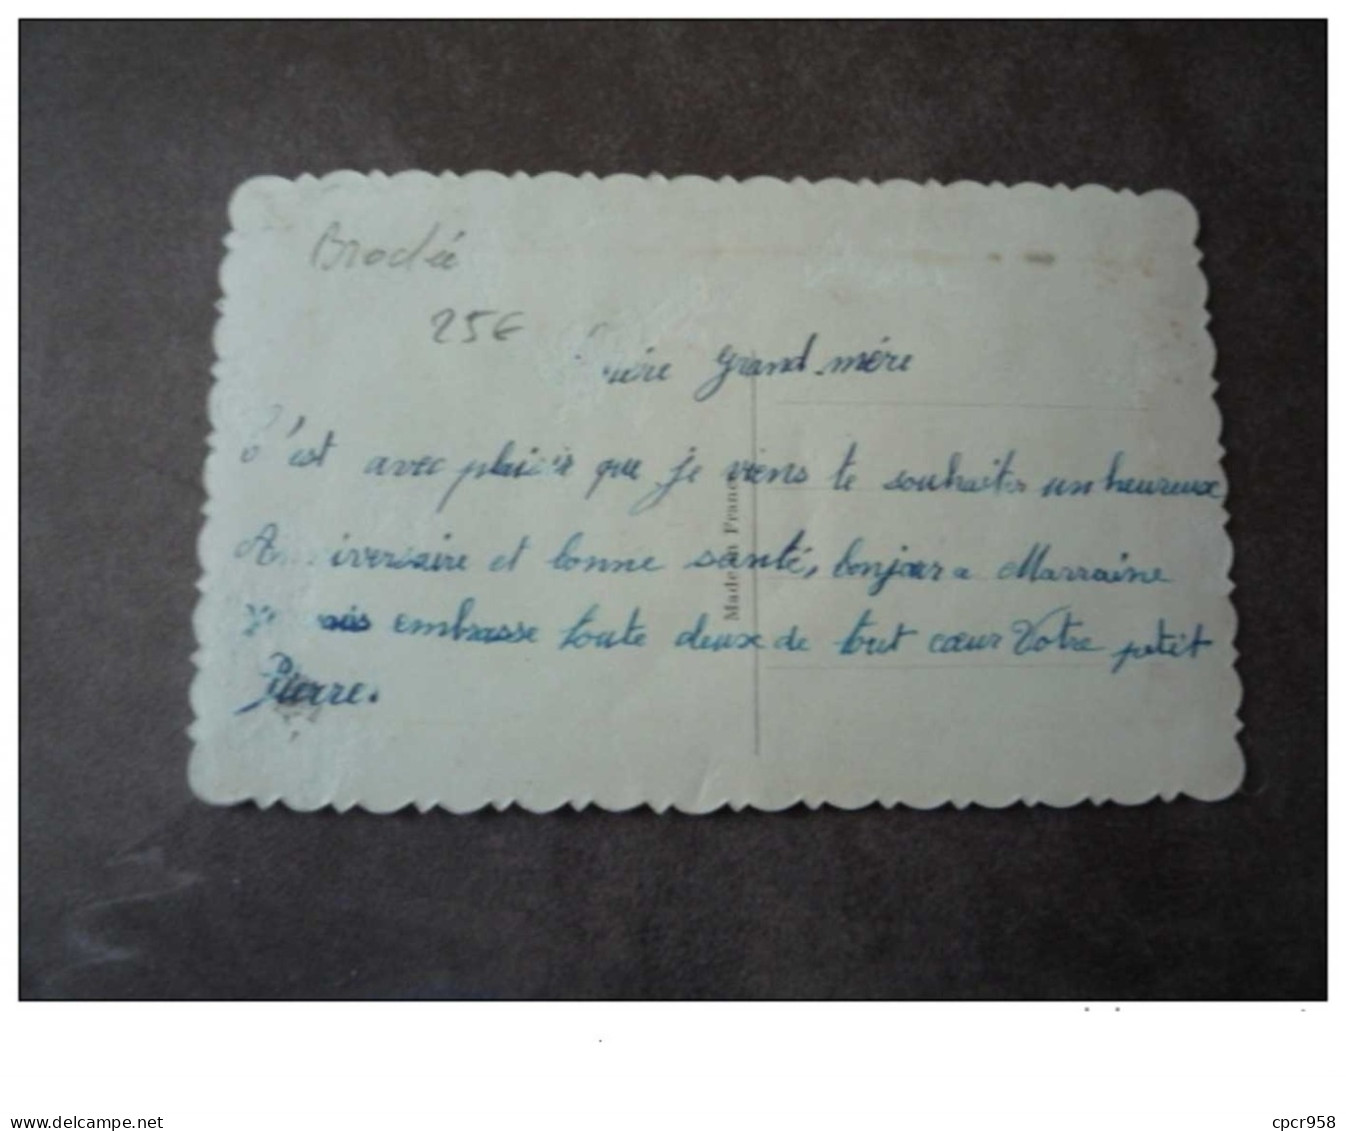 Brodée
25€
grand-mère
C'est avec plaisir que je viens te souhaiter un heureux
Anniversaire et bonne santé, bonjour a Marraine
Je vous embrasse toute deux de tout cœur Votre petit
Pierre.
Made in France
www.delcampe.net
cpcr958